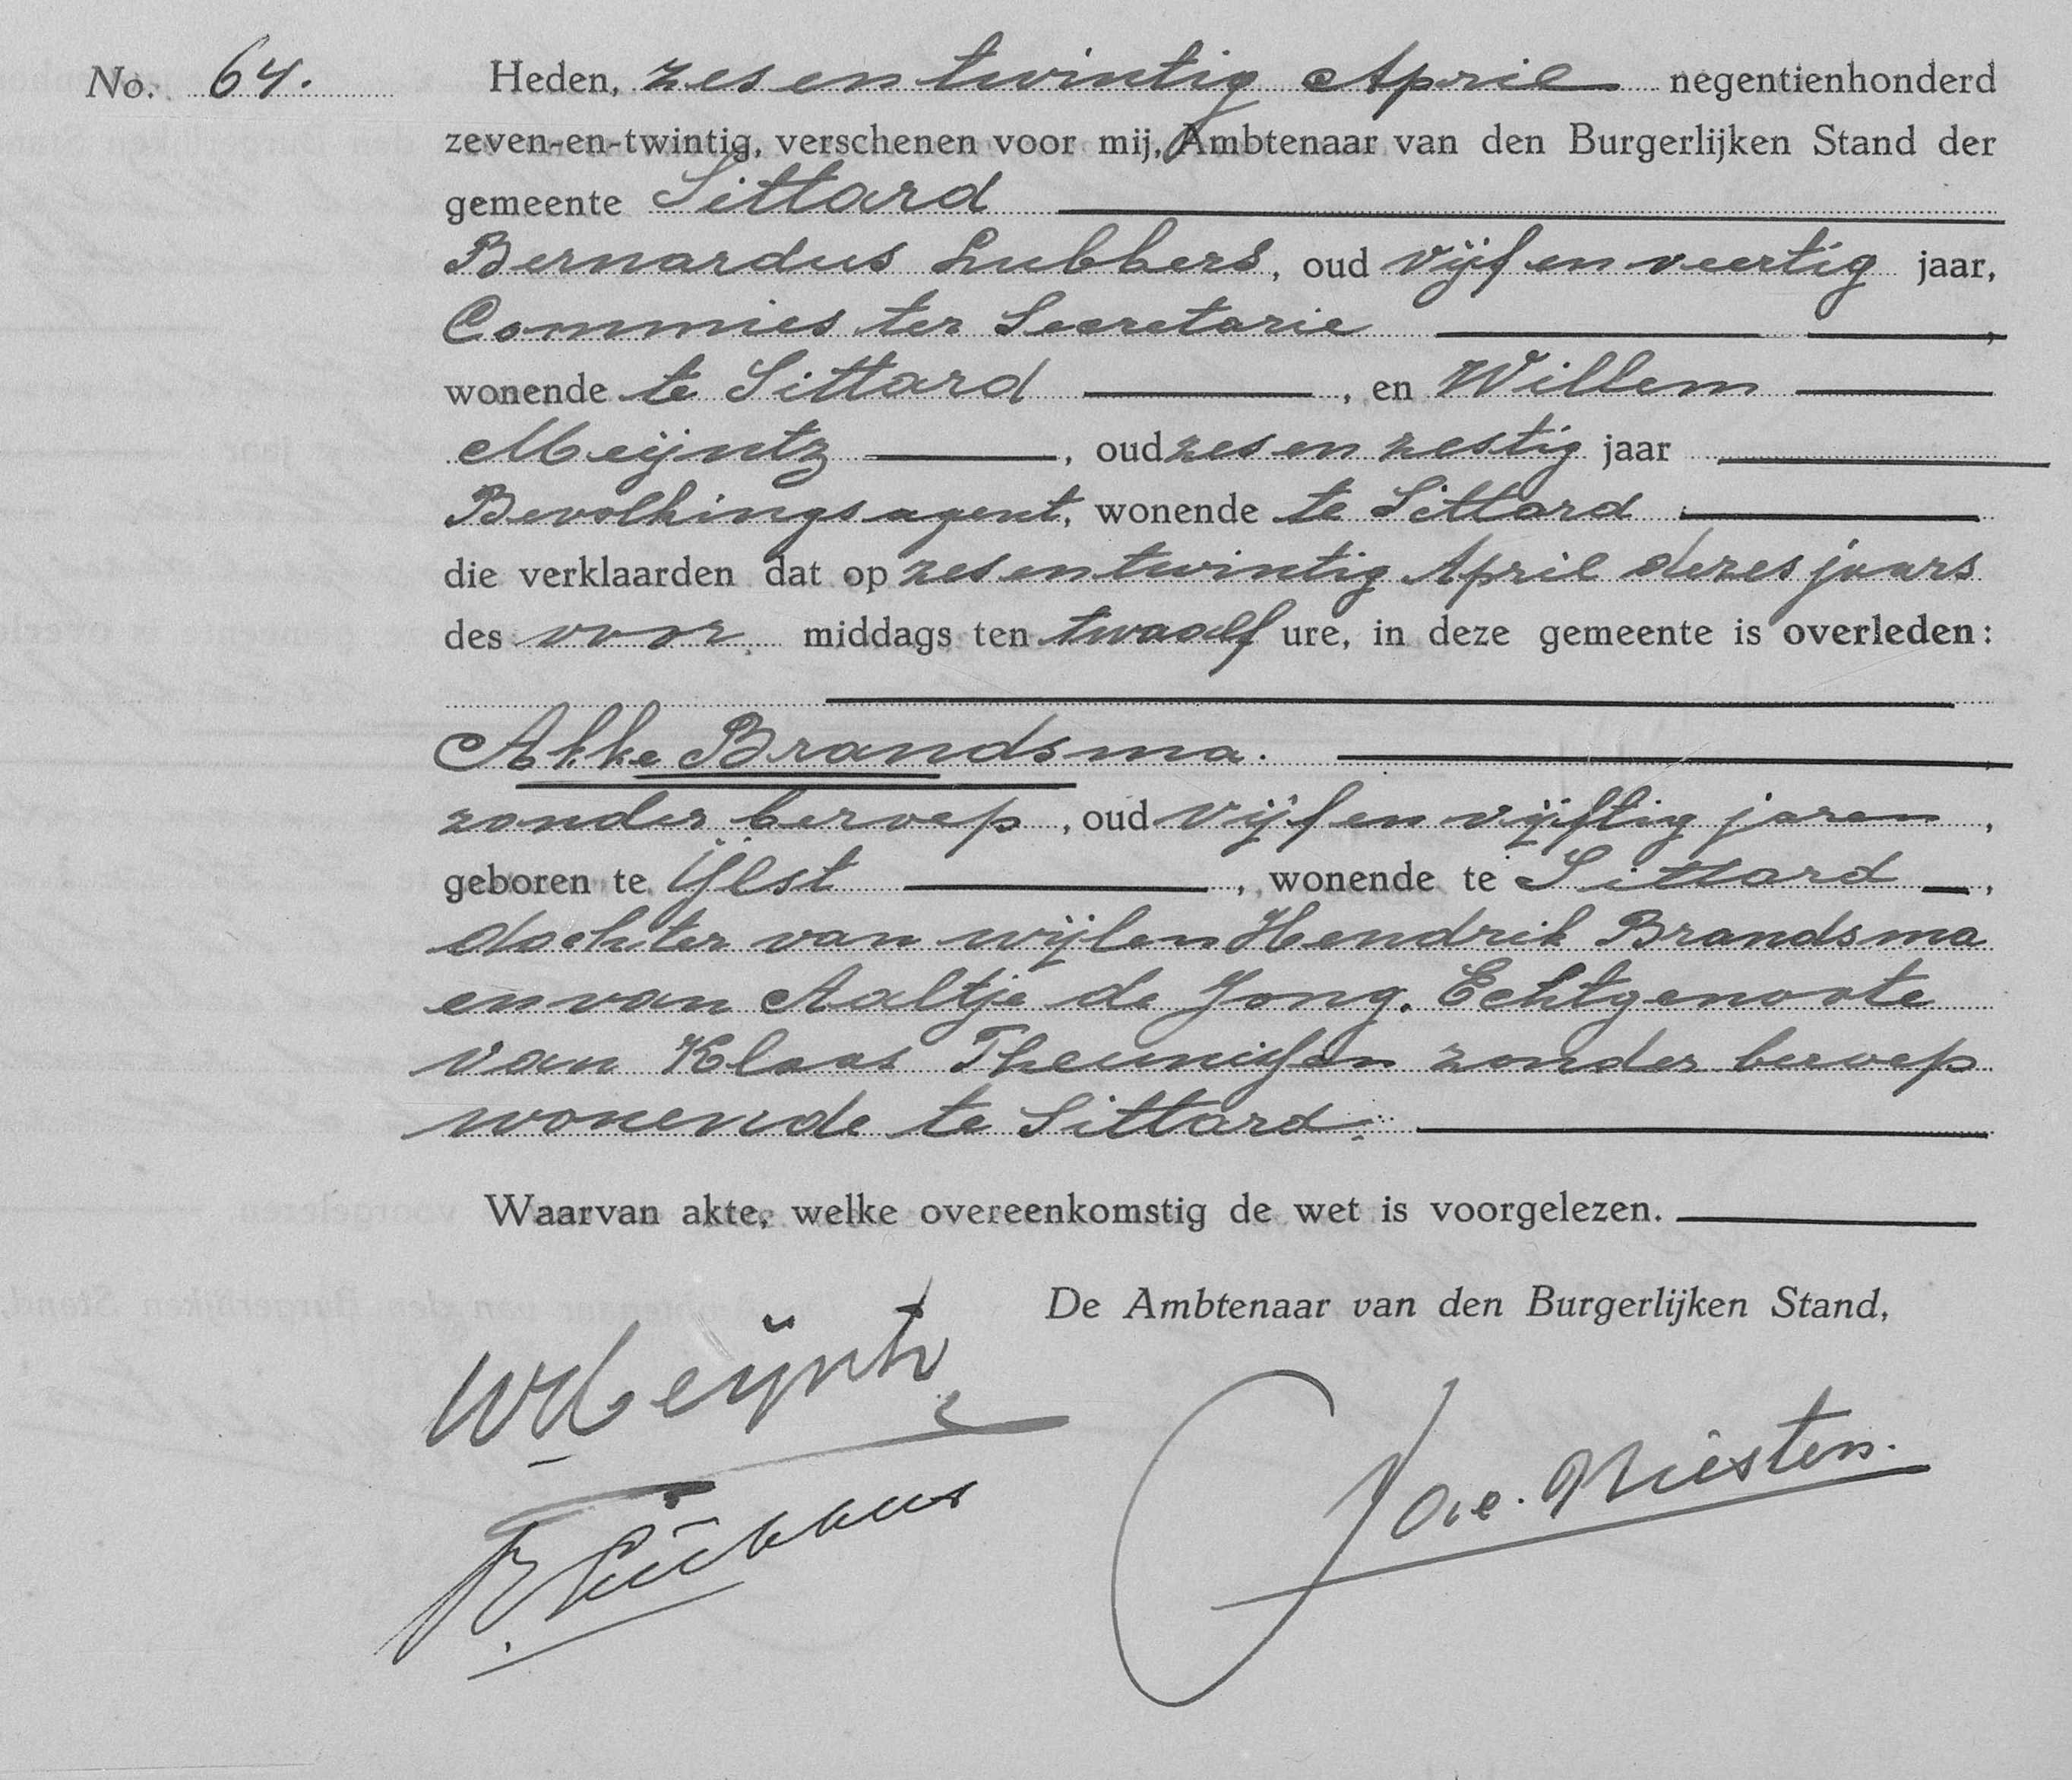 No. 64. Heden, zes en twintig April negentienhonderd
zeven-en-twintig, verschenen voor mij, Ambtenaar van den Burgerlijken Stand der
gemeente Sittard
Bernardus Lubbers, oud vijf en veertig jaar,
Commies ter Secretarie,
wonende te Sittard, en Willem
Meijntz, oud zes en zestig jaar
Bevolkingsagent, wonende te Sittard
die verklaarden dat op zes en twintig April dezes jaars
des voor middags ten twaalf ure, in deze gemeente is overleden:
Akke Brandsma.
zonder beroep, oud vijf en vijftig jaren,
geboren te IJlst, wonende te Sittard,
dochter van wijlen Hendrik Brandsma
en van Aaltje de Jong. Echtgenoote
van Klaas Theunissen zonder beroep
wonende te Sittard.
Waarvan akte, welke overeenkomstig de wet is voorgelezen.
De Ambtenaar van den Burgerlijken Stand,
WMeijntz
B Lubbers
Niesten.